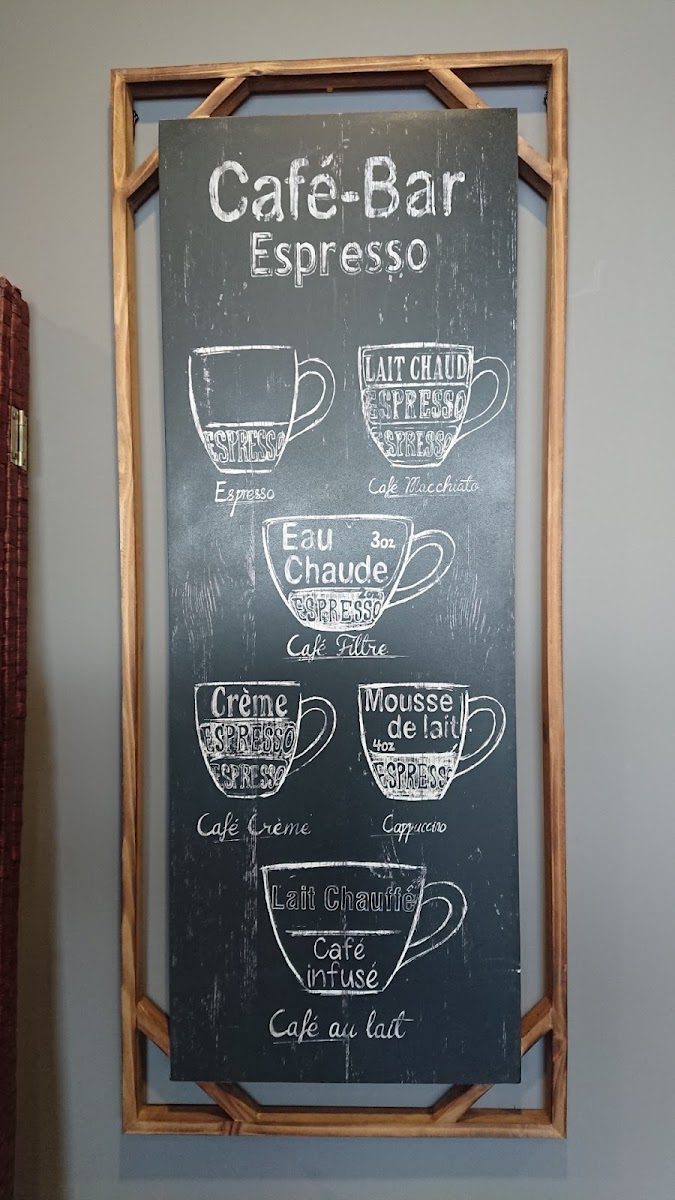 Café-Bar
Espresso
ESPRESSO
Espresso
LAIT CHAUD
ESPRESSO
ESPRESSO
Café Macchiato
Eau 3oz
Chaude
2oz
ESPRESSO
Café Filtre
Crème
ESPRESSO
ESPRESSO
Café Crème
Mousse
de lait
4oz
ESPRESSO
Cappuccino
Lait Chauffé
Café
infusé
Café au lait